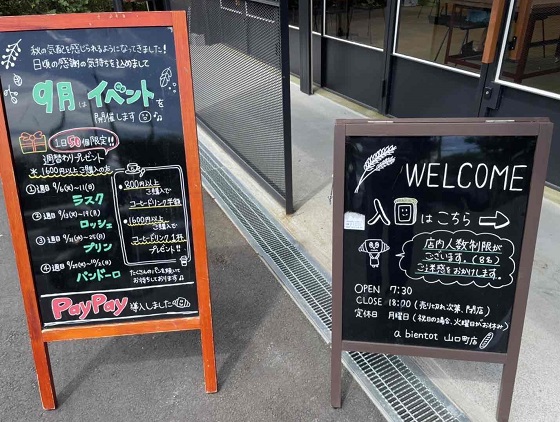 秋の気配を感じられるようになってきました!
日頃の感謝の気持ちを込めまして
9月はイベントを
開催します
1日50個限定!!
週替わりプレゼント
※1600円以上ご購入の方
①1週目 9/6(水)~11(日)
ラスク
②2週目
ロッシェ
③3週目
プリン
④4週目
パンドーロ
・800円以上
ご購入で
コーヒードリンク半額
・1600円以上
ご購入で
コーヒードリンク1杯
プレゼント!!
たくさんのパンを焼いて
お待ちしております
PayPay 導入しました
WELCOME
入口はこちら→
店内人数制限が
ございます。(8名)
ご迷惑をおかけします。
OPEN 7:30
CLOSE 18:00(売り切れ次第、閉店)
定休日 月曜日(祝日の場合、火曜日がお休み)
a bientot 山口町店